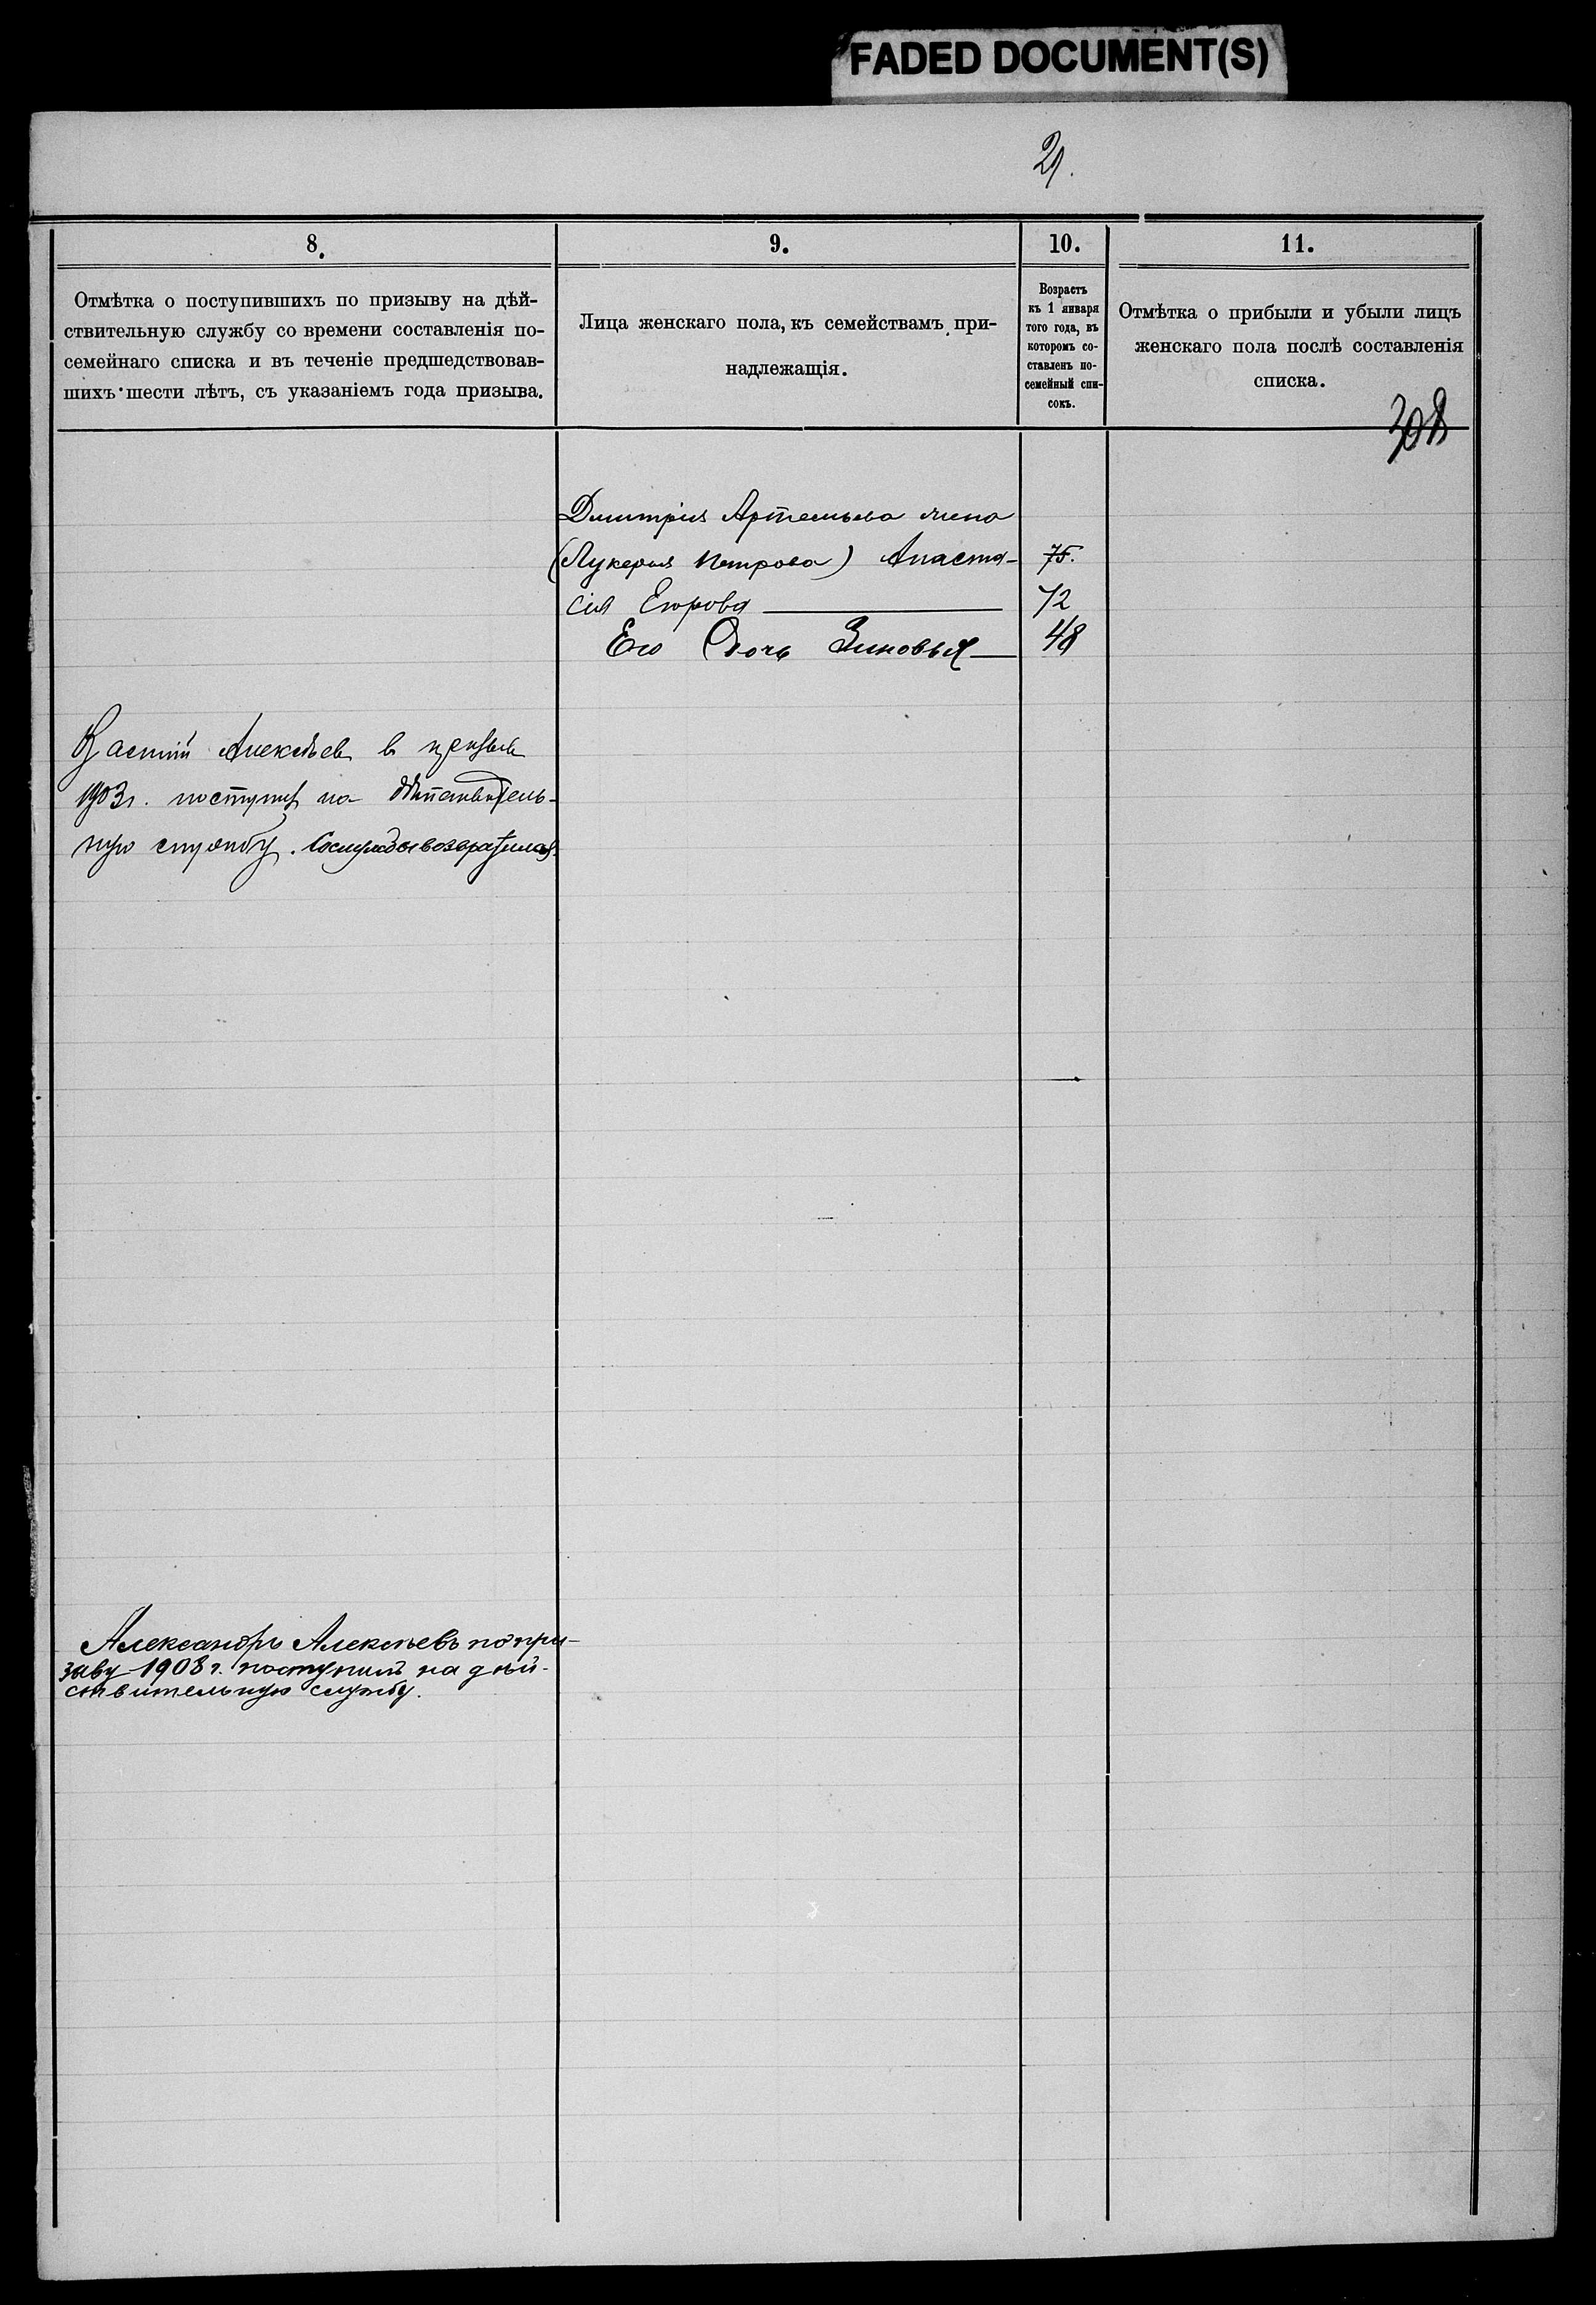 FADED DOCUMENT(S)
21.
8.
9.
10.
11.
Отмѣтка о поступившихъ по призыву на дѣй-
ствительную службу со времени составленія по-
семейнаго списка и въ теченіе предшедствовав-
шихъ шести лѣтъ, съ указаніемъ года призыва.
Лица женскаго пола, къ семействамъ при-
надлежащія.
Возрастъ
къ 1 января
того года, въ
которомъ со-
ставленъ по-
семейный спи-
сокъ.
Отмѣтка о прибыли и убыли лицъ
женскаго пола послѣ составленія
списка.
308
Дмитрія Артемьева жена
(Лукерья Петрова) Анаста- 75.
сія Егорова 72
Его дочь Зиновья 48
Алексѣев в призыв
1903г. поступил на действитель-
ную службу. Со службы возвратился.
Александръ Алексѣевъ по при-
зыву 1908 г. поступилъ на дѣй-
ствительную службу.